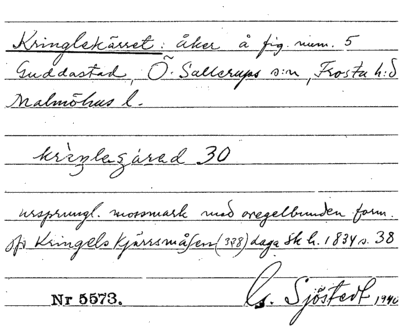 Kringlekärret: åker å fig. num. 5
Guddastad, Ö. Sallerups s:n, Frosta h:d
Malmöhus l.
30
ursprungl. mossmark med oregelbunden form.
Kringels Kjärrsmåsen (398) laga sk h. 1834 s. 38
Nr 5573. G. Sjöstedt 1940